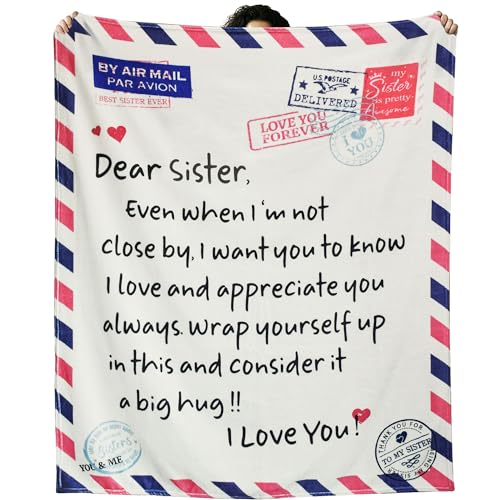 BY AIR MAIL
PAR AVION
BEST SISTER EVER
U.S. POSTAGE
DELIVERED
my
Sister
is pretty
Awesome
LOVE YOU
FOREVER
I YOU
Dear Sister,
Even when I'm not
close by, I want you to know
I love and appreciate you
always. wrap yourself up
in this and consider it
a big hug!!
I Love You!
Sisters
YOU & ME
THANK YOU FOR
TO MY SISTER
BEING MY SISTER